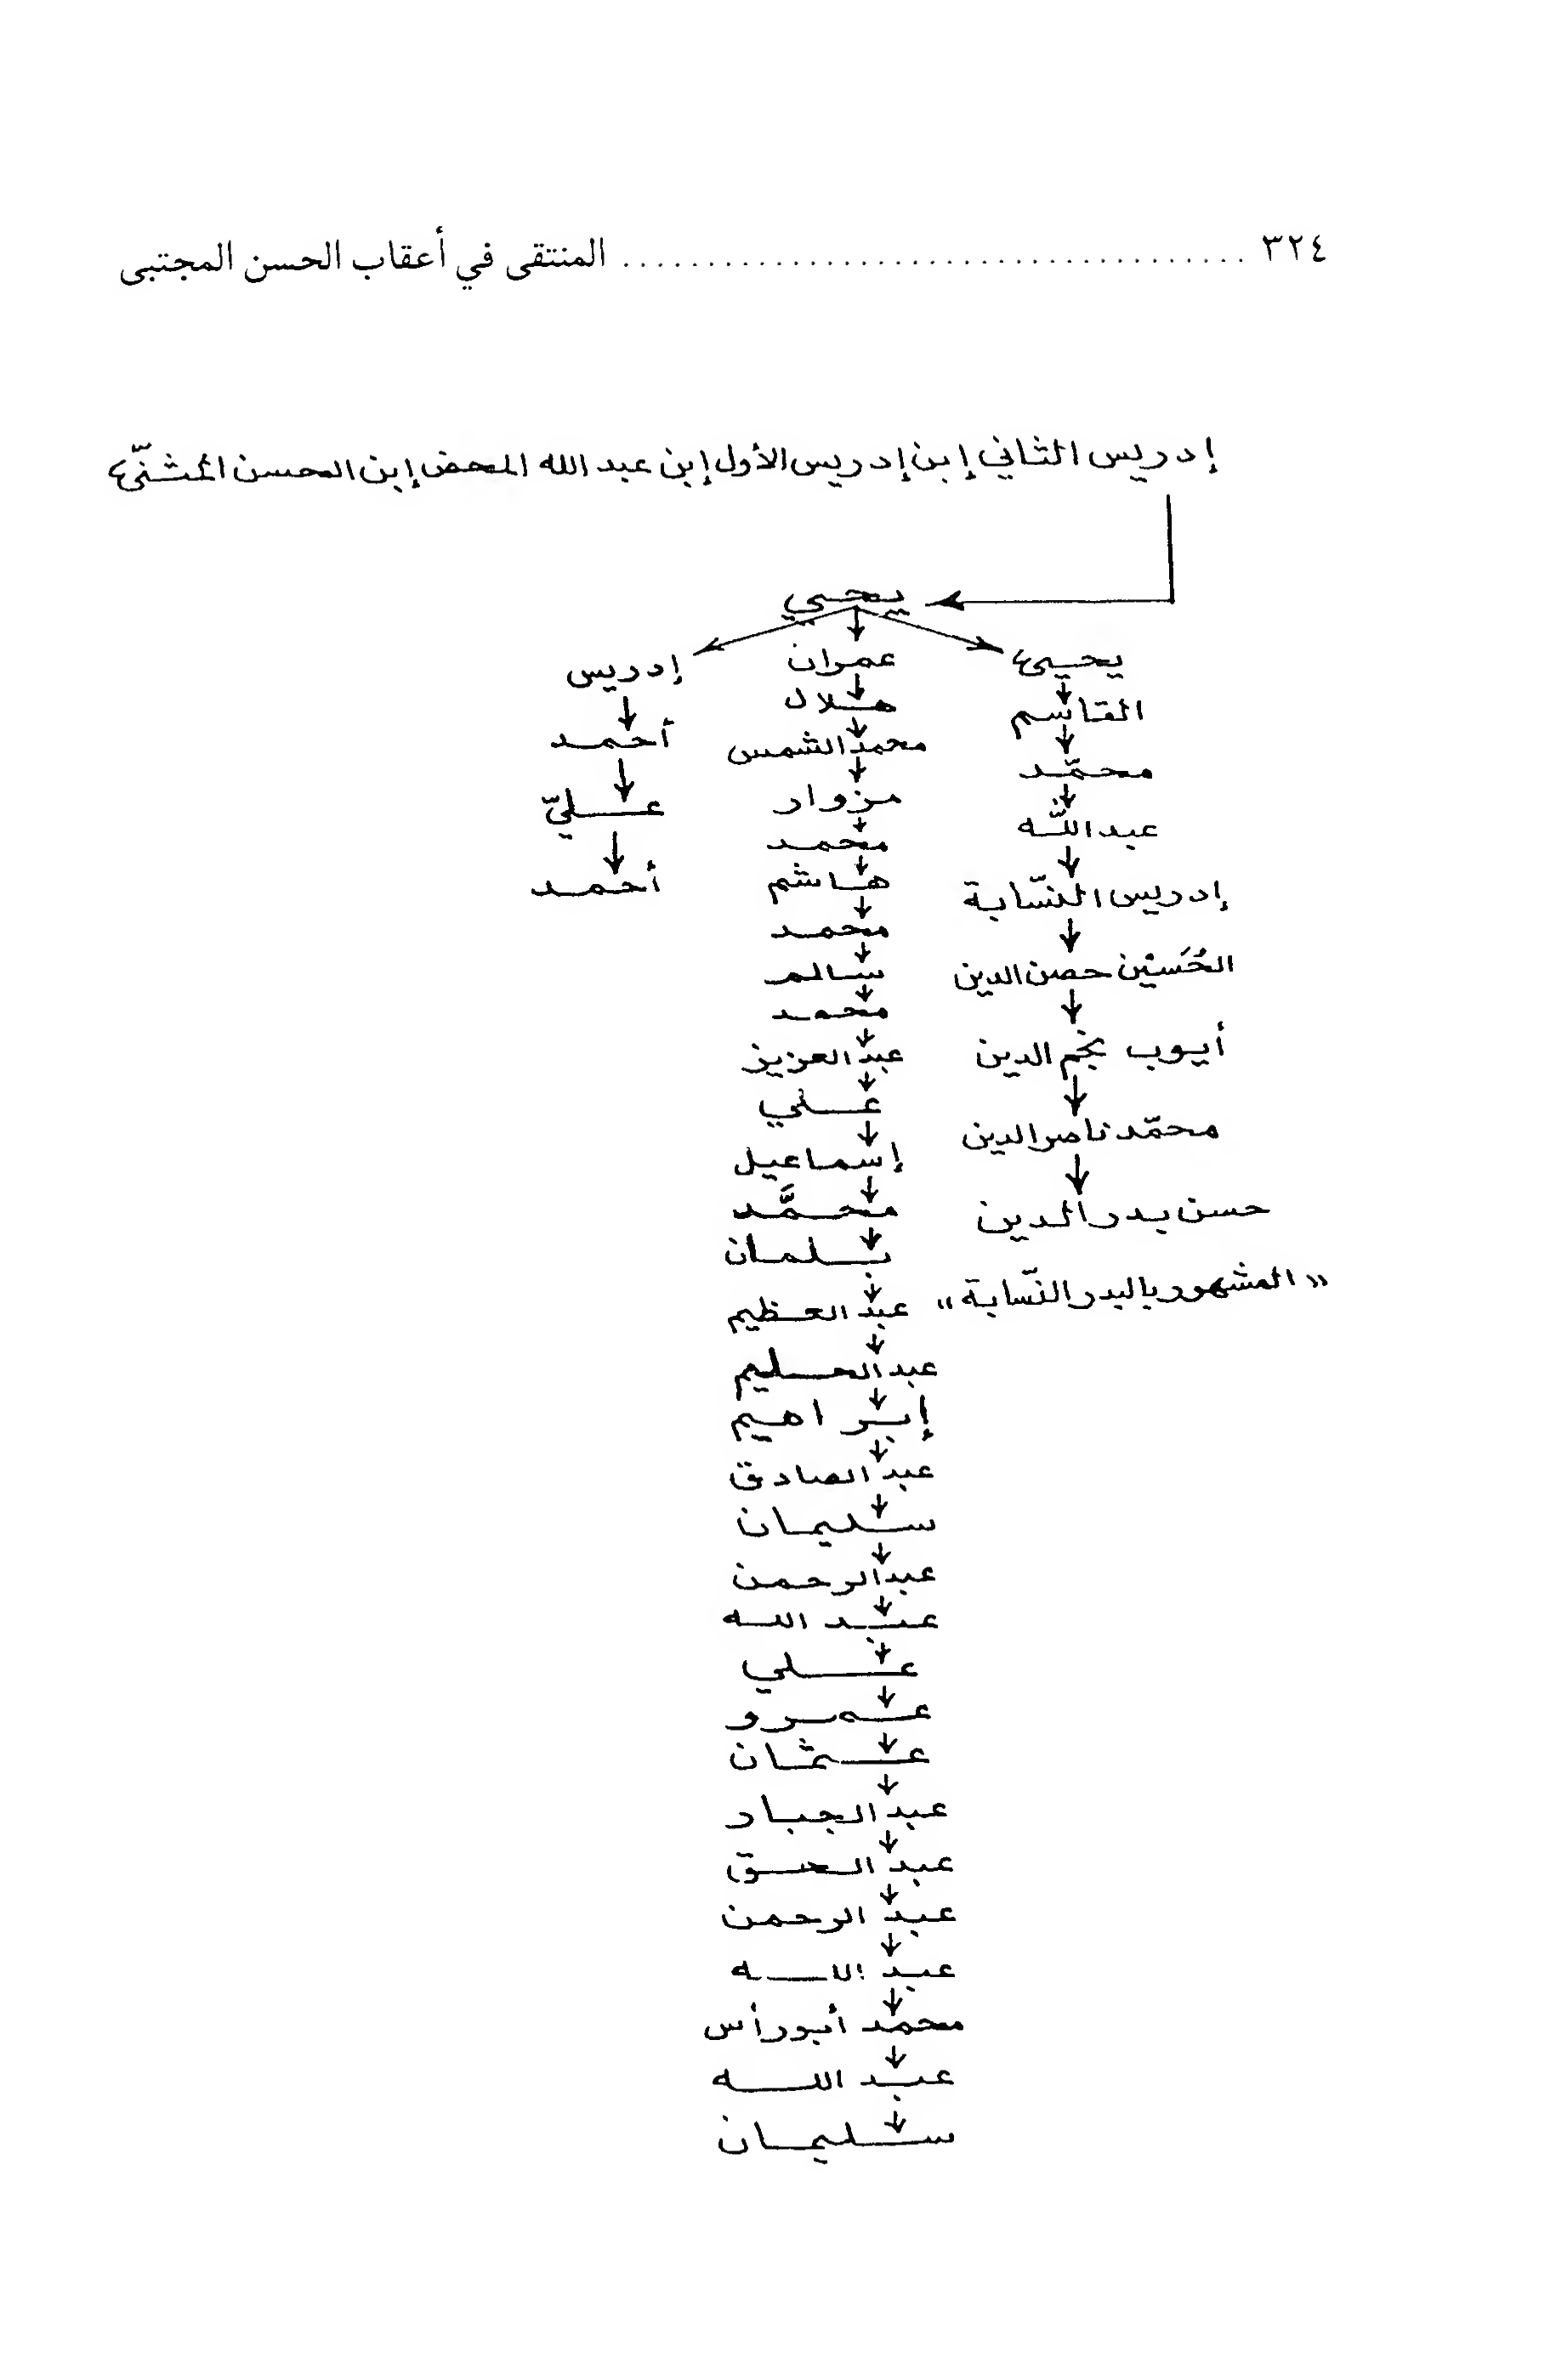 ٣٢٤ ..................................... المنتقى في أعقاب الحسن المجتبى
إدريس الثاني إبن إدريس الأول إبن عبد الله المحض إبن الحسن المثنّى
يحيي
يحيى
القاسم
محمّد
عبد اللّه
إدريس النسّابة
الحُسَيْن حصن الدين
أيوب نجم الدين
محمّد ناصر الدين
حسن بدر الدين
« المشهور بالبدر النسّابة »
عمران
هلال
محمد الشمس
مزوار
محمد
هاشم
محمد
سالم
محمد
عبد العزيز
علي
إسماعيل
محمَّد
سلمان
عبد العظيم
عبد الحليم
إبراهيم
عبد الصادق
سليمان
عبد الرحمن
عبد الله
علي
عمرو
عثمان
عبد الجبار
عبد الحق
عبد الرحمن
عبد الله
محمد أبو رأس
عبد الله
سليمان
إدريس
أحمد
عليّ
أحمد